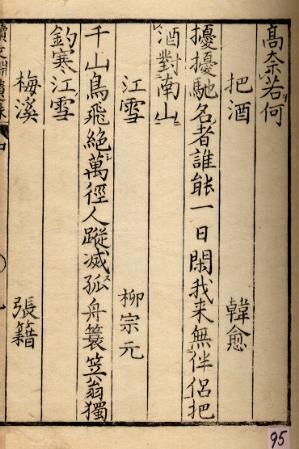 高奈若何
把酒 韓愈
擾擾馳名者誰能一日閑我来無伴侶把
酒對南山
江雪 柳宗元
千山鳥飛絶萬徑人蹤滅孤舟簑笠翁獨
釣寒江雪
梅溪 張籍
95